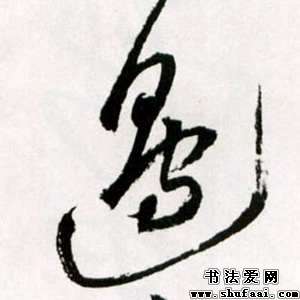 邊
书法爱网
www.shufaai.com